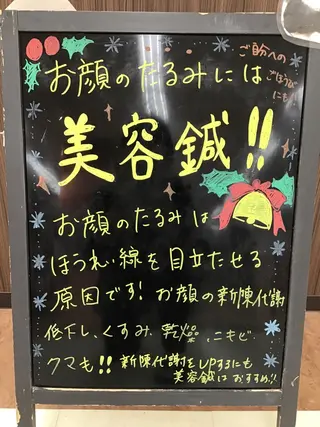 お顔のたるみには
ご自分への
ごほうび
にも
美容鍼!!
お顔のたるみは
ほうれい線を目立たせる
原因です! お顔の新陳代謝
低下し、くすみ、乾燥、ニキビ
クマも!! 新陳代謝をUPするにも
美容鍼はおすすめ!!